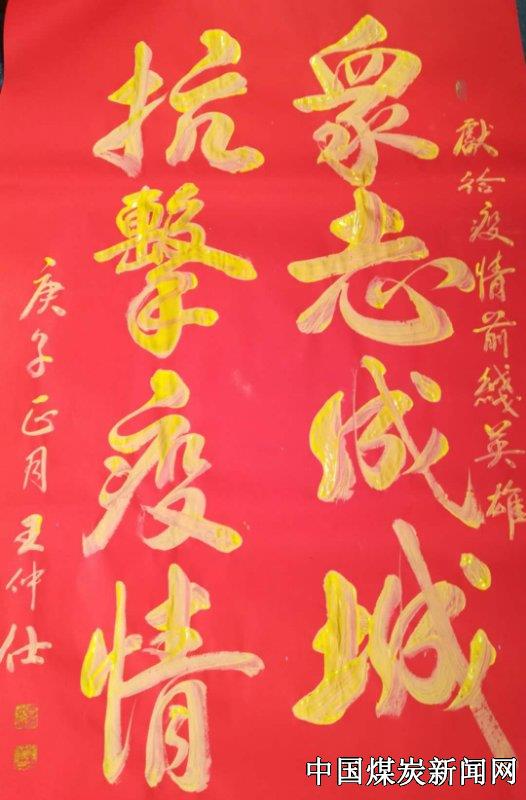 獻给疫情前綫英雄
眾志成城
抗擊疫情
庚子正月 王仲仕
中国煤炭新闻网